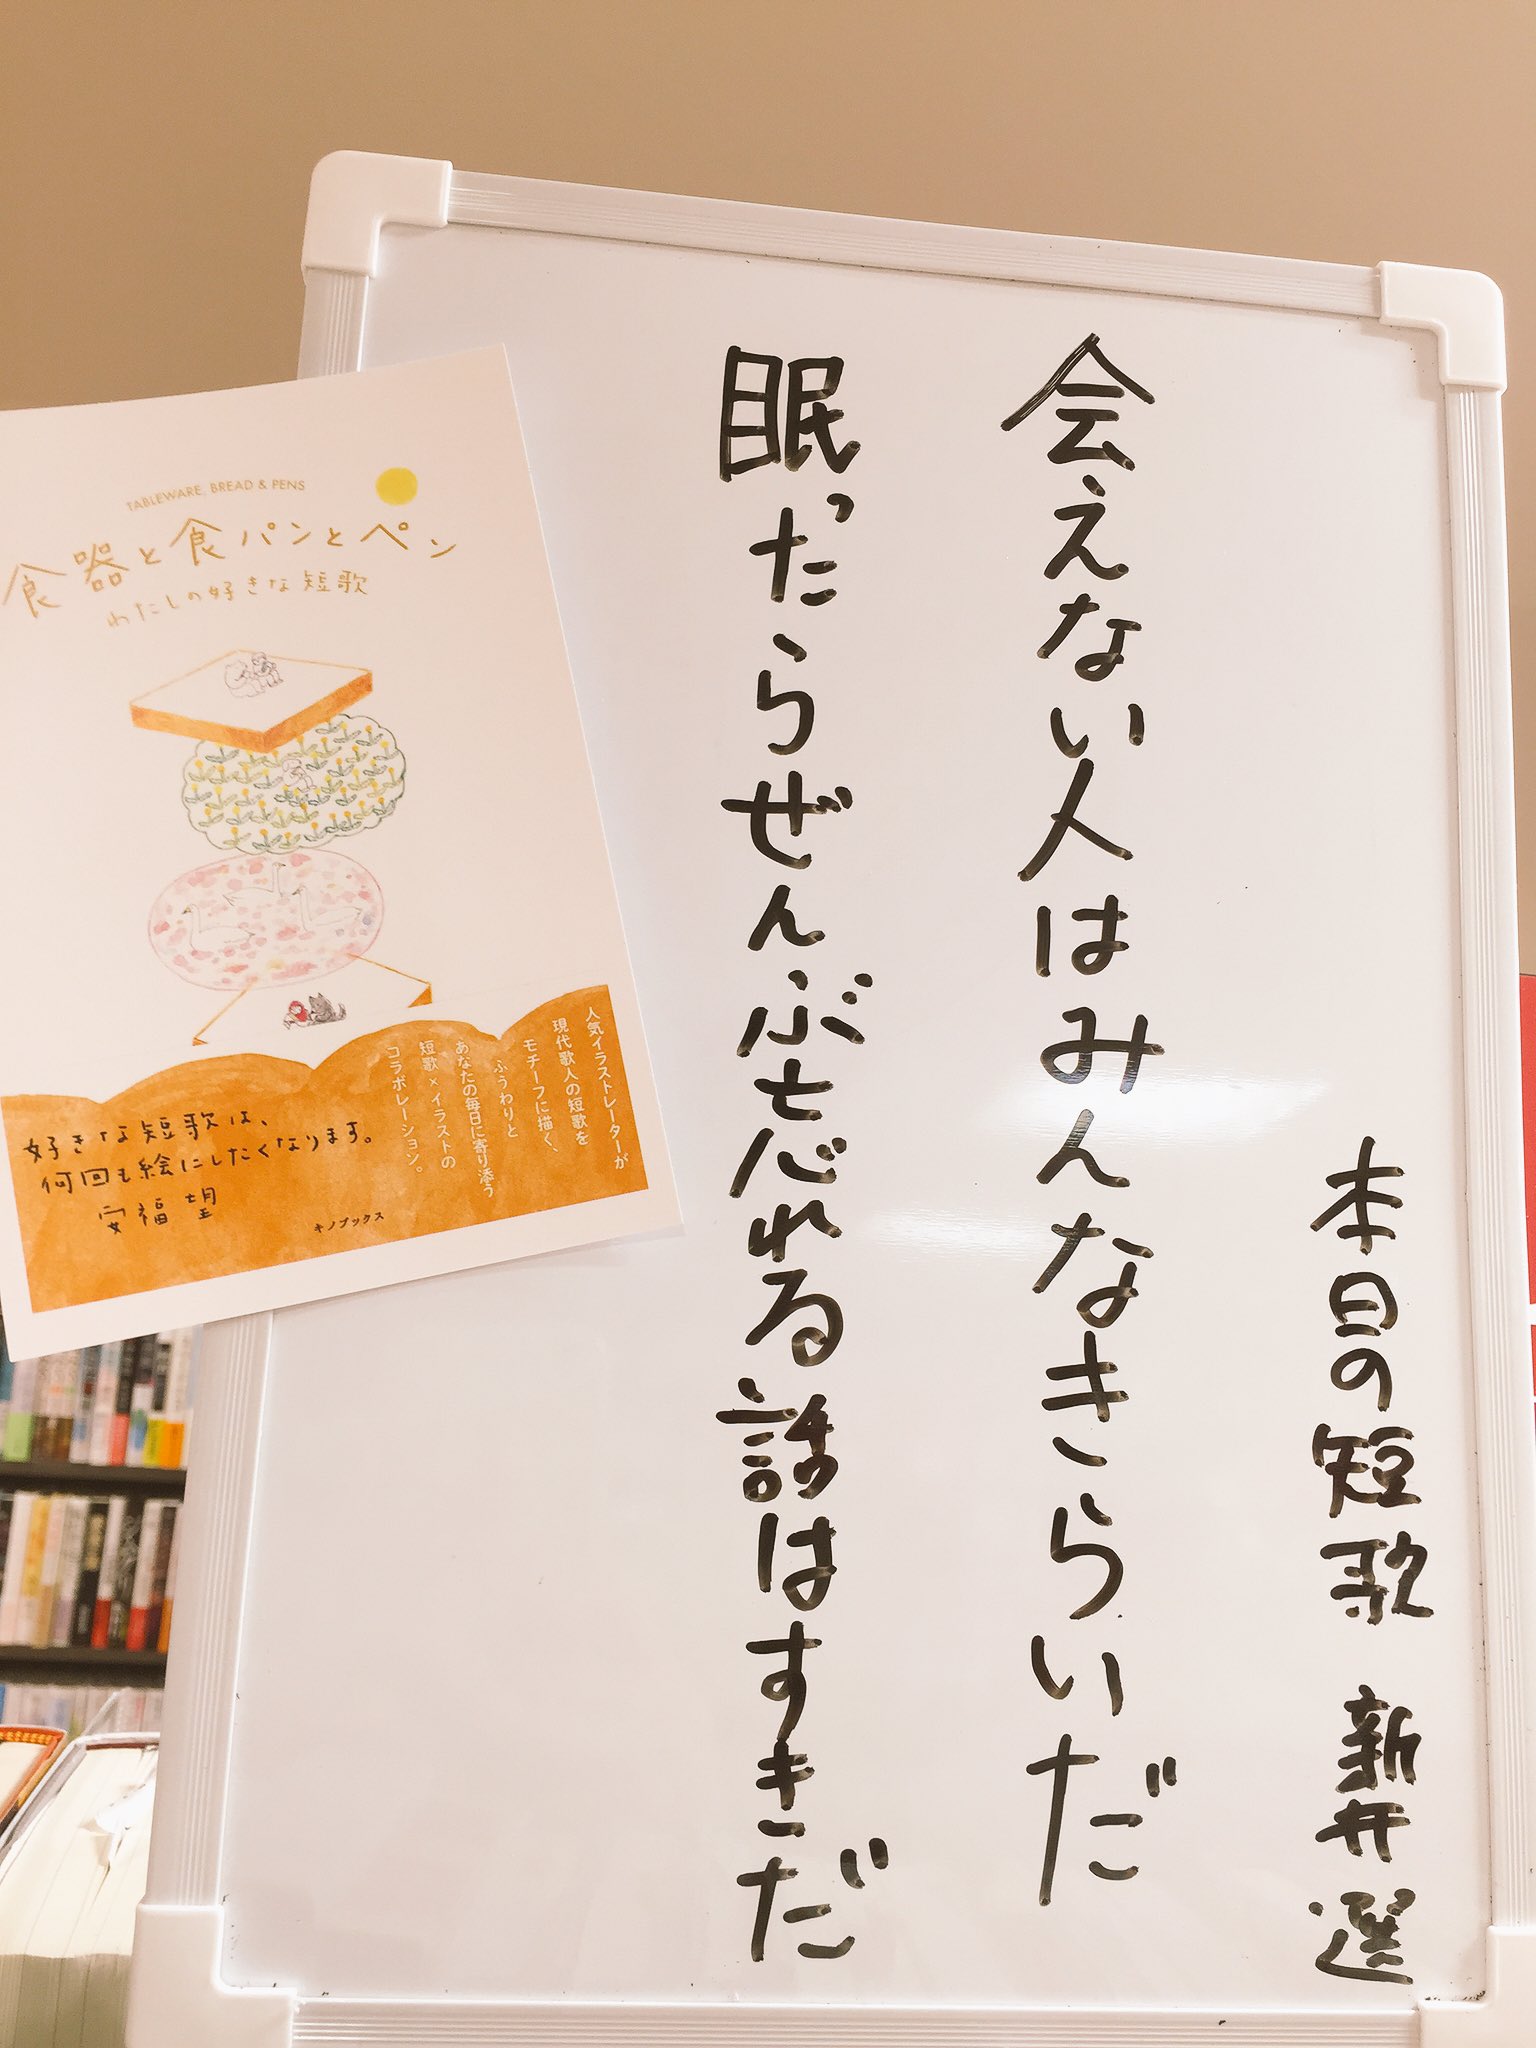 本日の短歌 新井選
会えない人はみんなきらいだ
眠ったらぜんぶ忘れる話はすきだ
TABLEWARE, BREAD & PENS
食器と食パンとペン
わたしの好きな短歌
人気イラストレーターが
現代歌人の短歌を
モチーフに描く、
ふうわりと
あなたの毎日に寄り添う
短歌×イラストの
コラボレーション。
好きな短歌は、
何回も絵にしたくなります。
安福望
キノブックス